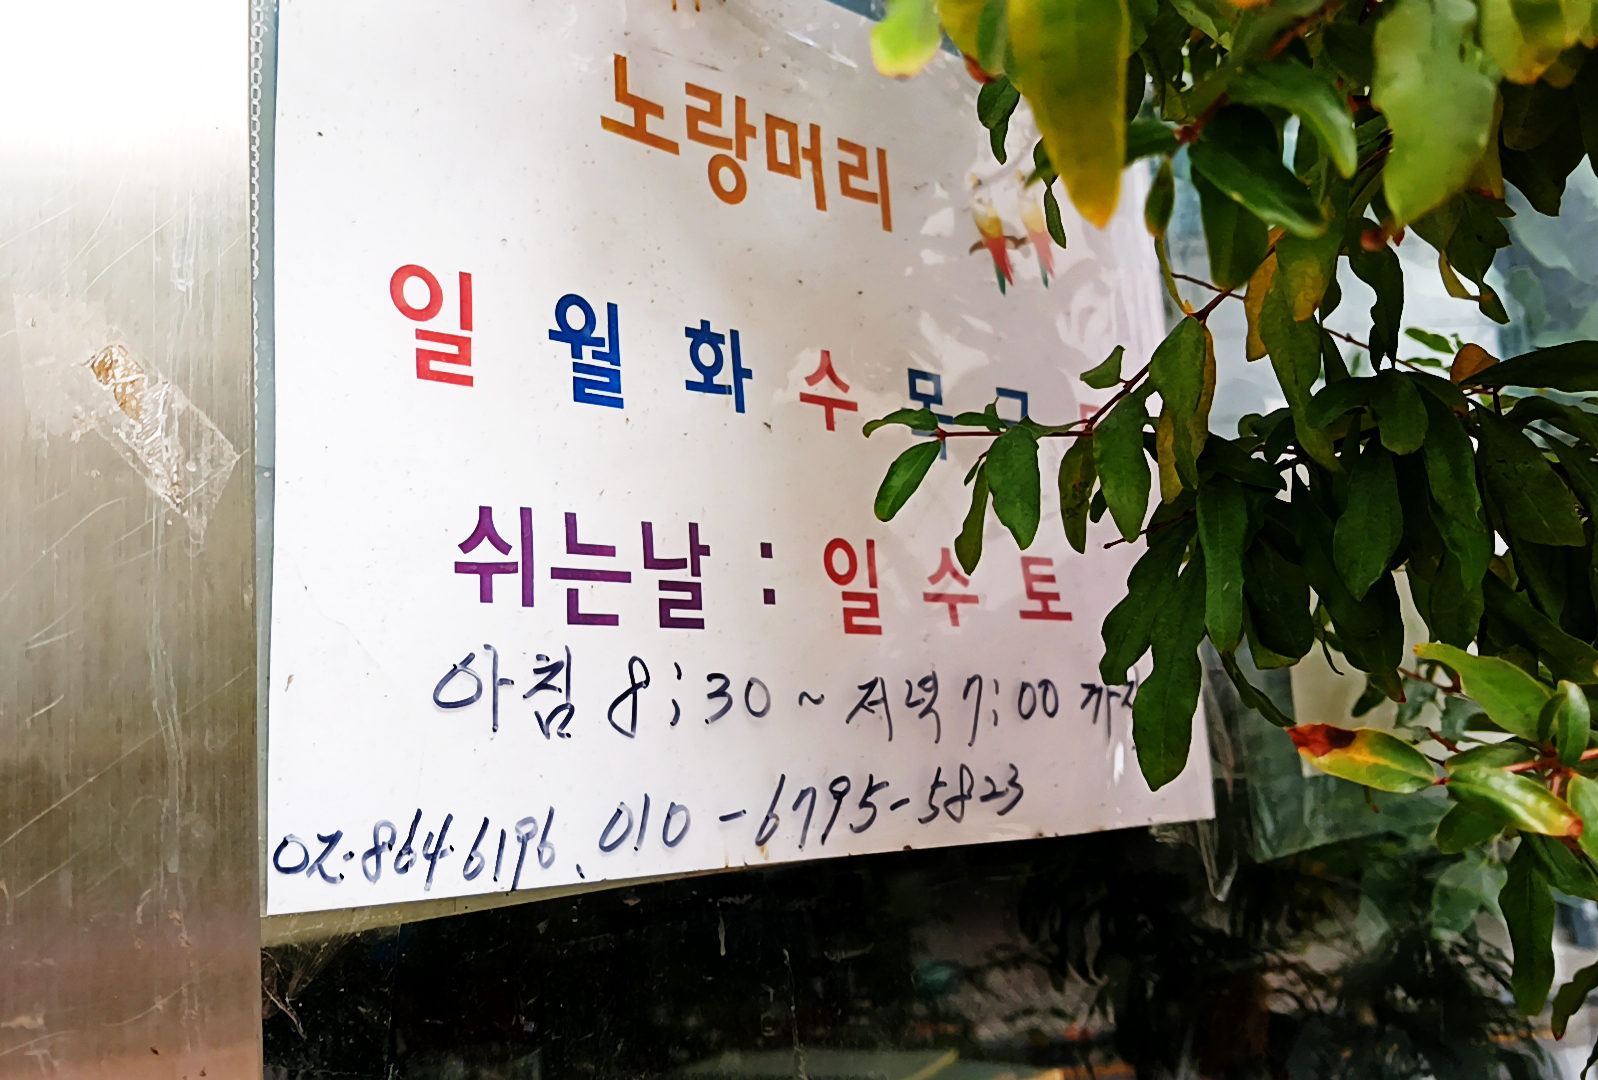 노랑머리
일 월 화 수 목 금
쉬는날 : 일 수 토
아침 8:30 ~ 저녁 7:00 까지
02-864-6196. 010-6795-5823